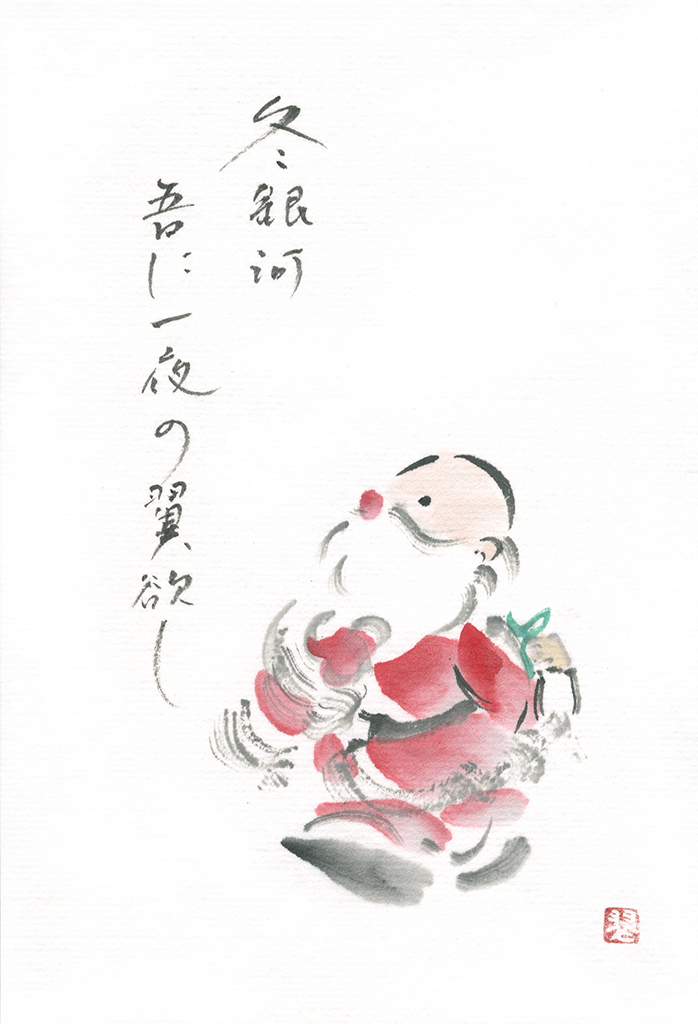 冬銀河
吾に一夜の翼欲し